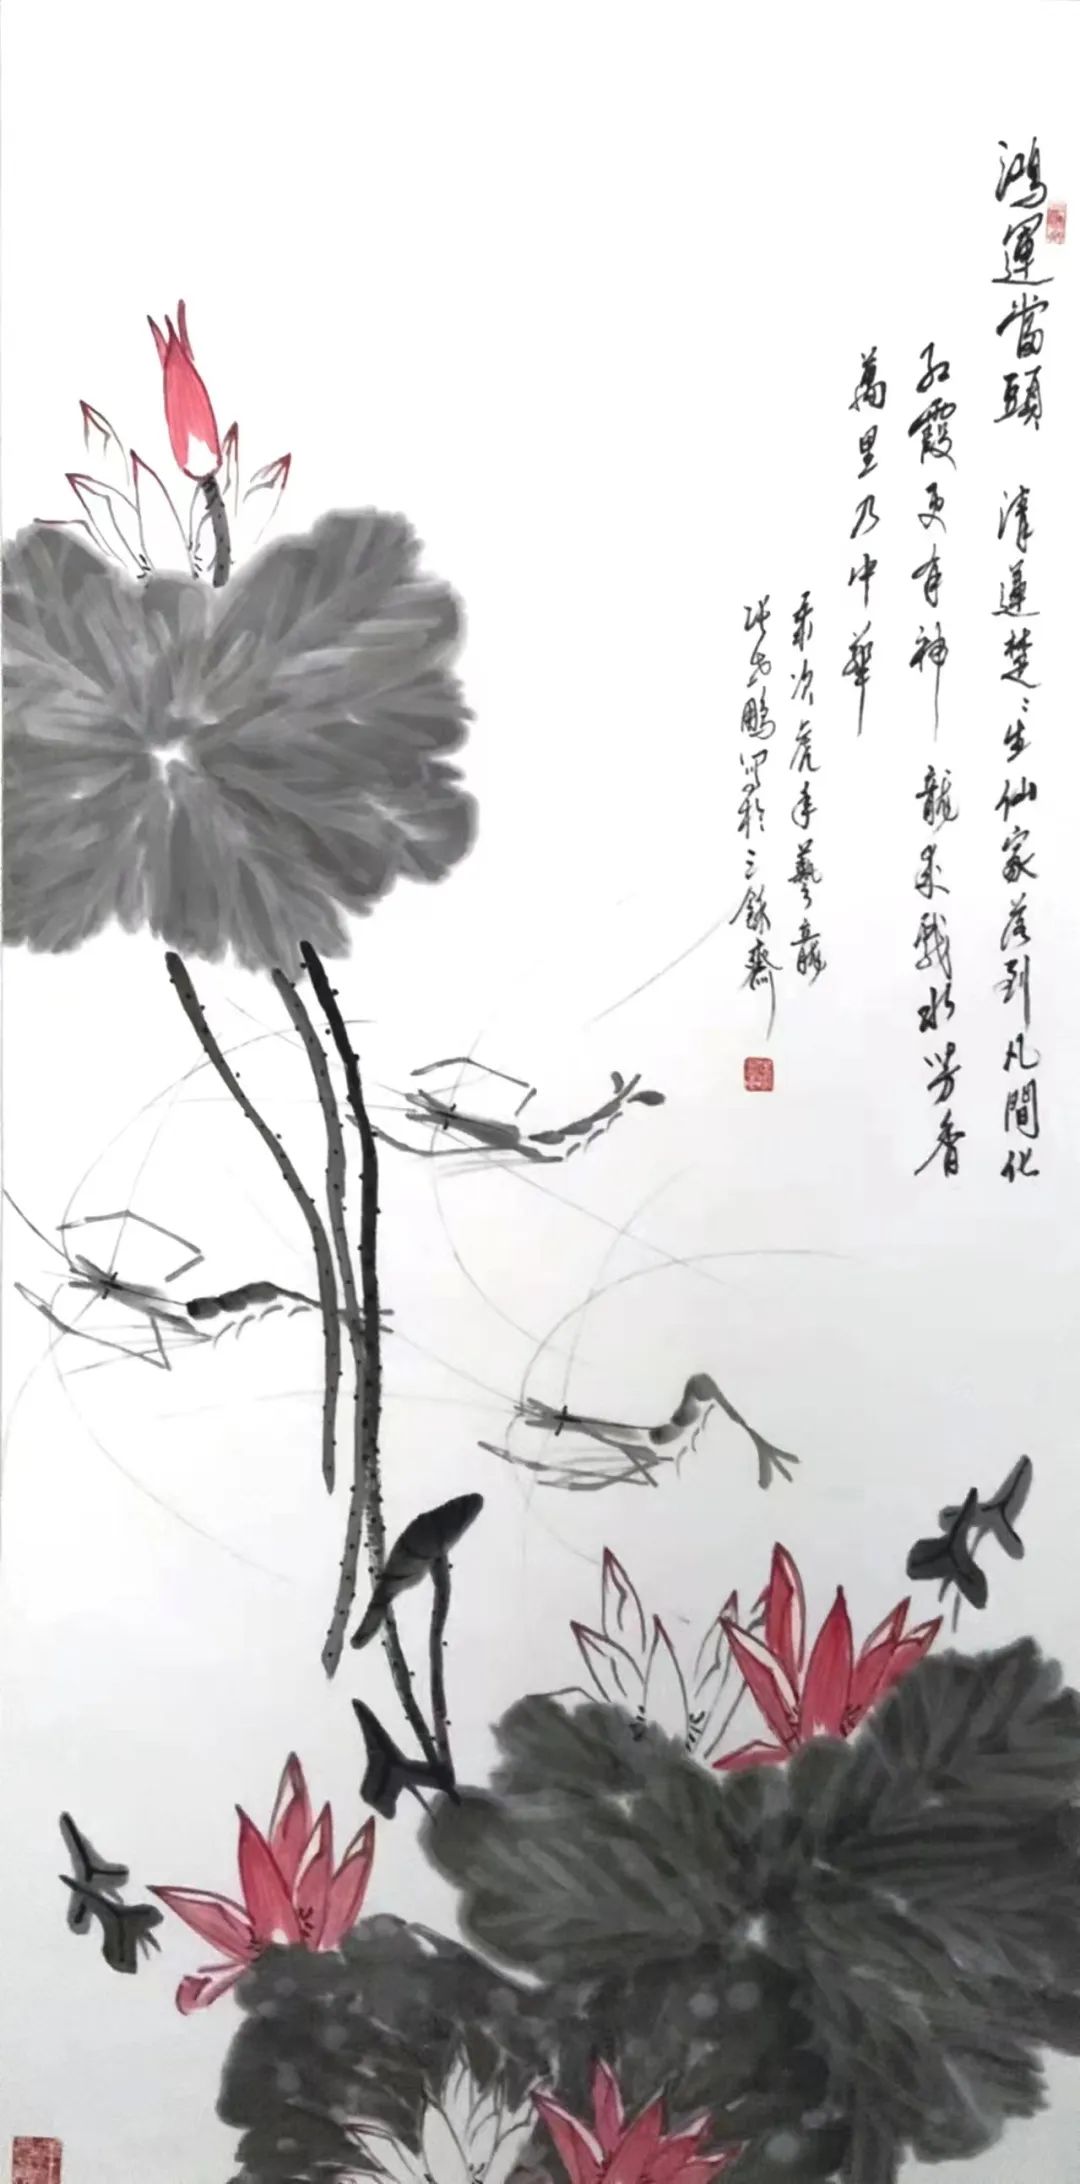 鴻運當頭 清蓮楚〻生仙家落到凡間化
紅霞更有神 龍來戲水芳香
萬里乃中華
次虎年藝龍
鵬寫於三餘齋